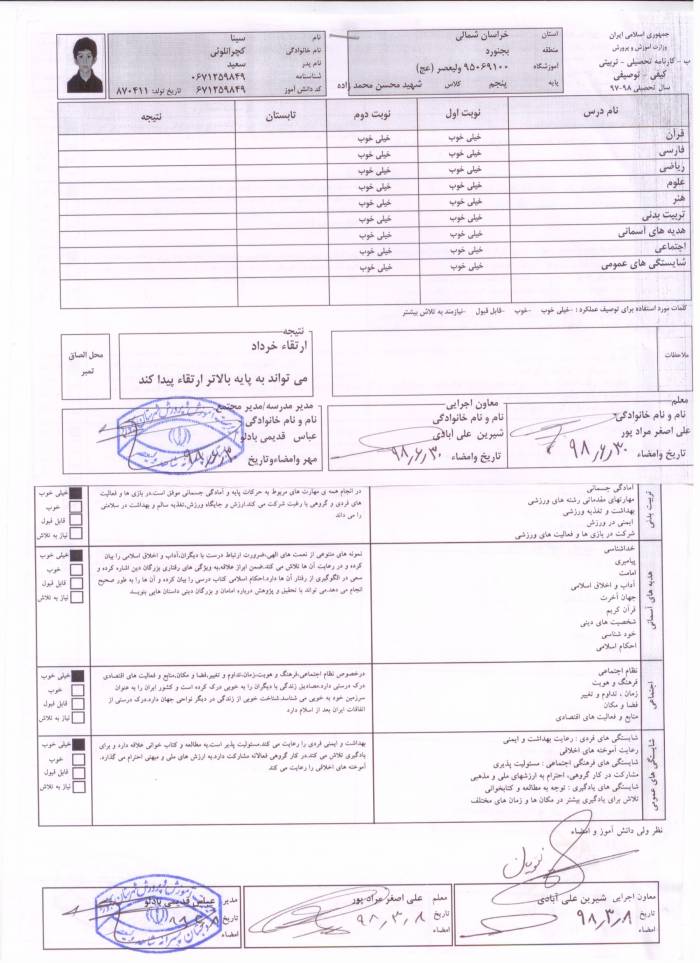 جمهوری اسلامی ایران
وزارت آموزش و پرورش
ب - کارنامه تحصیلی - تربیتی
کیفی - توصیفی
سال تحصیلی ۹۸-۹۷
استان خراسان شمالی
منطقه بجنورد
آموزشگاه ۹۵۰۶۹۱۰۰ ولیعصر (عج)
پایه پنجم کلاس شهید محسن محمد زاده
نام سینا
نام خانوادگی کچرانلوئی
نام پدر سعید
شناسنامه ۰۶۷۱۲۵۹۸۴۹
کد دانش آموز ۰۶۷۱۲۵۹۸۴۹ تاریخ تولد: ۸۷۰۴۱۱
نام درس نوبت اول نوبت دوم تابستان نتیجه
قرآن خیلی خوب خیلی خوب
فارسی خیلی خوب خیلی خوب
ریاضی خیلی خوب خیلی خوب
علوم خیلی خوب خیلی خوب
هنر خیلی خوب خیلی خوب
تربیت بدنی خیلی خوب خیلی خوب
هدیه های آسمانی خیلی خوب خیلی خوب
اجتماعی خیلی خوب خیلی خوب
شایستگی های عمومی خیلی خوب خیلی خوب
کلمات مورد استفاده برای توصیف عملکرد : -خیلی خوب -خوب -قابل قبول -نیازمند به تلاش بیشتر
ملاحظات
نتیجه
ارتقاء خرداد
می تواند به پایه بالاتر ارتقاء پیدا کند
محل الصاق
تمبر
معلم
نام و نام خانوادگی
علی اصغر مراد پور
تاریخ وامضاء ۹۸,۶,۳۰
معاون اجرایی
نام و نام خانوادگی
شیرین علی آبادی
تاریخ وامضاء ۹۸,۶,۳۰
مدیر مدرسه/مدیر مجتمع
نام و نام خانوادگی
عباس قدیمی بادلو
مهر وامضاءوتاریخ ۹۸,۶,۳۰
تربیت بدنی
آمادگی جسمانی
مهارتهای مقدماتی رشته های ورزشی
بهداشت و تغذیه ورزشی
ایمنی در ورزش
شرکت در بازی ها و فعالیت های ورزشی
در انجام همه ی مهارت های مربوط به حرکات پایه و آمادگی جسمانی موفق است.در بازی ها و فعالیت
های فردی و گروهی با رغبت شرکت می کند.ارزش و جایگاه ورزش،تغذیه سالم و بهداشت در سلامتی
را می داند
خیلی خوب
خوب
قابل قبول
نیاز به تلاش
هدیه های آسمانی
خداشناسی
پیامبری
امامت
آداب و اخلاق اسلامی
جهان آخرت
قرآن کریم
شخصیت های دینی
خود شناسی
احکام اسلامی
نمونه های متنوعی از نعمت های الهی،ضرورت ارتباط درست با دیگران،آداب و اخلاق اسلامی را بیان
کرده و در رعایت آن ها تلاش می کند.ضمن ابراز علاقه،به ویژگی های رفتاری بزرگان دین اشاره کرده و
سعی در الگوگیری از رفتار آن ها دارد.احکام اسلامی کتاب درسی را بیان کرده و آن ها را به طور صحیح
انجام می دهد.می تواند با تحقیق و پژوهش درباره امامان و بزرگان دینی داستان هایی بنویسد
خیلی خوب
خوب
قابل قبول
نیاز به تلاش
اجتماعی
نظام اجتماعی
فرهنگ و هویت
زمان ، تداوم و تغییر
فضا و مکان
منابع و فعالیت های اقتصادی
درخصوص نظام اجتماعی،فرهنگ و هویت،زمان،تداوم و تغییر،فضا و مکان،منابع و فعالیت های اقتصادی
درک درستی دارد.مصادیق زندگی با دیگران را به خوبی درک کرده است و کشور ایران را به عنوان
سرزمین خود به خوبی می شناسد.شناخت خوبی از زندگی در دیگر نواحی جهان دارد.درک درستی از
اتفاقات ایران بعد از اسلام دارد
خیلی خوب
خوب
قابل قبول
نیاز به تلاش
شایستگی های عمومی
شایستگی های فردی : رعایت بهداشت و ایمنی
رعایت آموخته های اخلاقی
شایستگی های فرهنگی اجتماعی : مسئولیت پذیری
مشارکت در کار گروهی، احترام به ارزشهای ملی و مذهبی
شایستگی های یادگیری : توجه به مطالعه و کتابخوانی
تلاش برای یادگیری بیشتر در مکان ها و زمان های مختلف
بهداشت و ایمنی فردی را رعایت می کند.مسئولیت پذیر است.به مطالعه و کتاب خوانی علاقه دارد و برای
یادگیری تلاش می کند.در کار گروهی فعالانه مشارکت دارد.به ارزش های ملی و میهنی احترام می گذارد.
آموخته های اخلاقی را رعایت می کند
خیلی خوب
خوب
قابل قبول
نیاز به تلاش
نظر ولی دانش آموز و امضاء
معاون اجرایی شیرین علی آبادی
تاریخ ۹۸,۳,۸
امضاء
معلم علی اصغر مراد پور
تاریخ ۹۸,۳,۸
امضاء
مدیر عباس قدیمی بادلو
تاریخ
امضاء